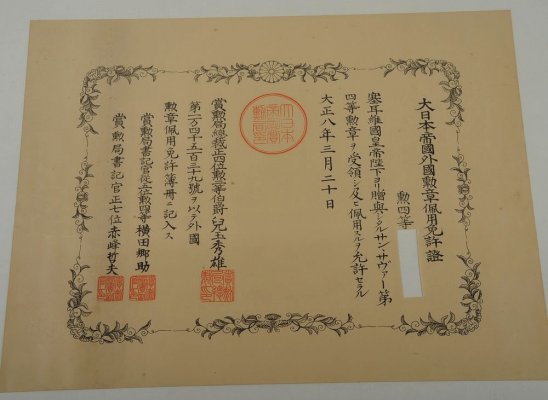 大日本帝國外國勲章佩用免許證
勲四等
塞耳維國皇帝陛下ヨリ贈與シタルサン、サヴァー第
四等勲章ヲ受領シ及ヒ佩用スルヲ允許セラル
大正八年三月二十日
賞勲局總裁正四位勲二等伯爵兒玉秀雄
第二万四千五百三十九號ヲ以テ外國
勲章佩用免許簿冊ニ記入ス
賞勲局書記官從五位勲四等横田郷助
賞勲局書記官正七位赤峰哲夫